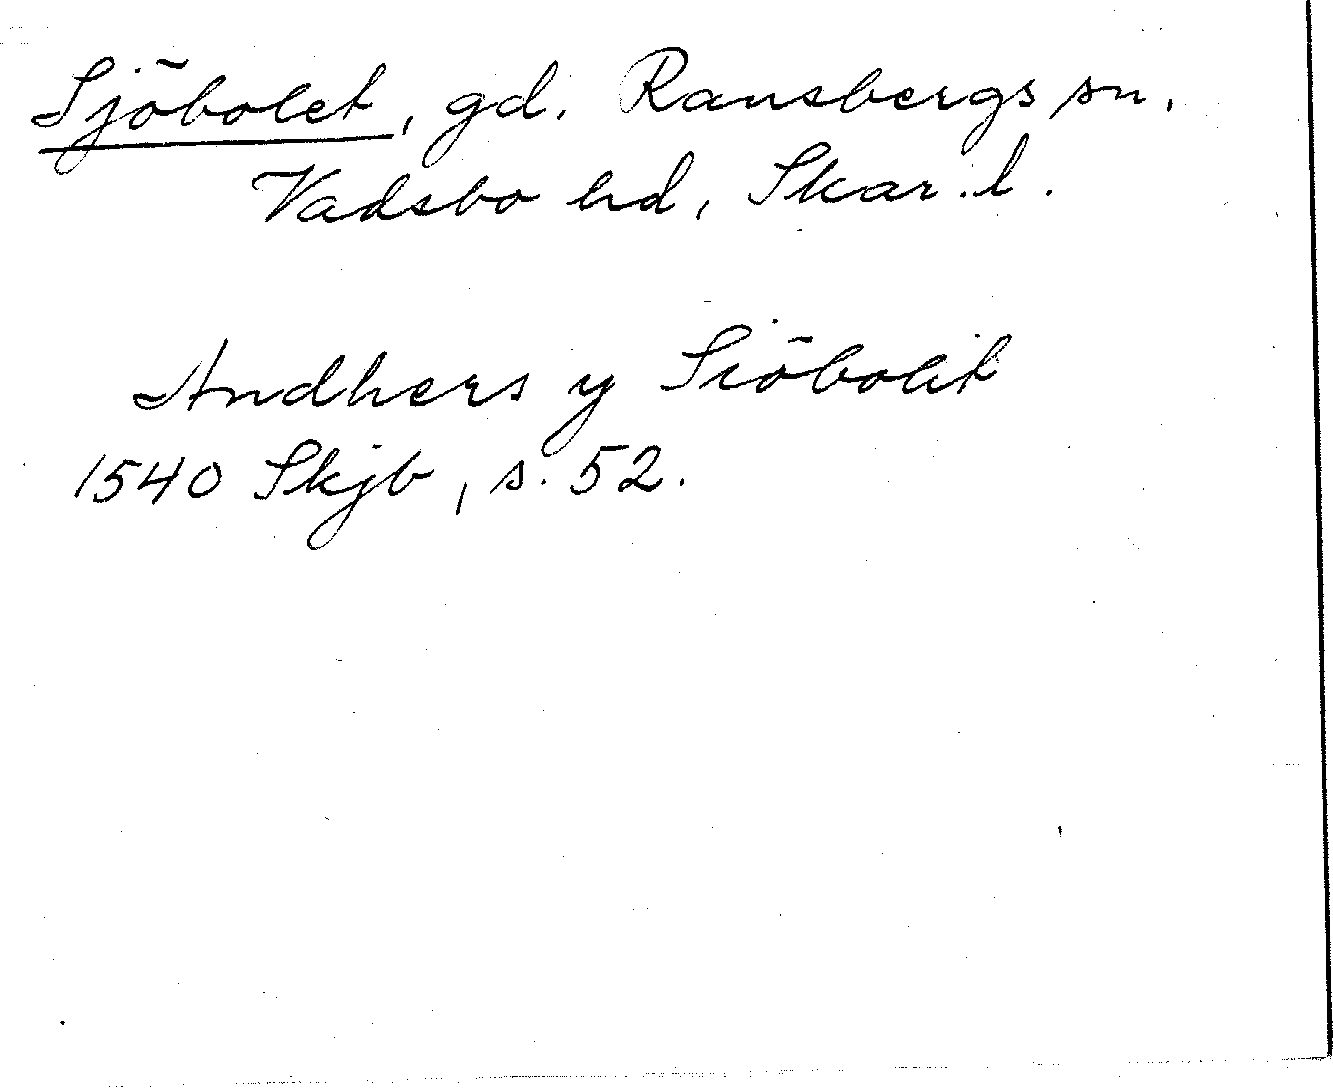 Sjöbolet, gd. Ransbergs sn.
Vadsbo hd, Skar. l.
Andhers y Siöbolit
1540 Skjb, s. 52.